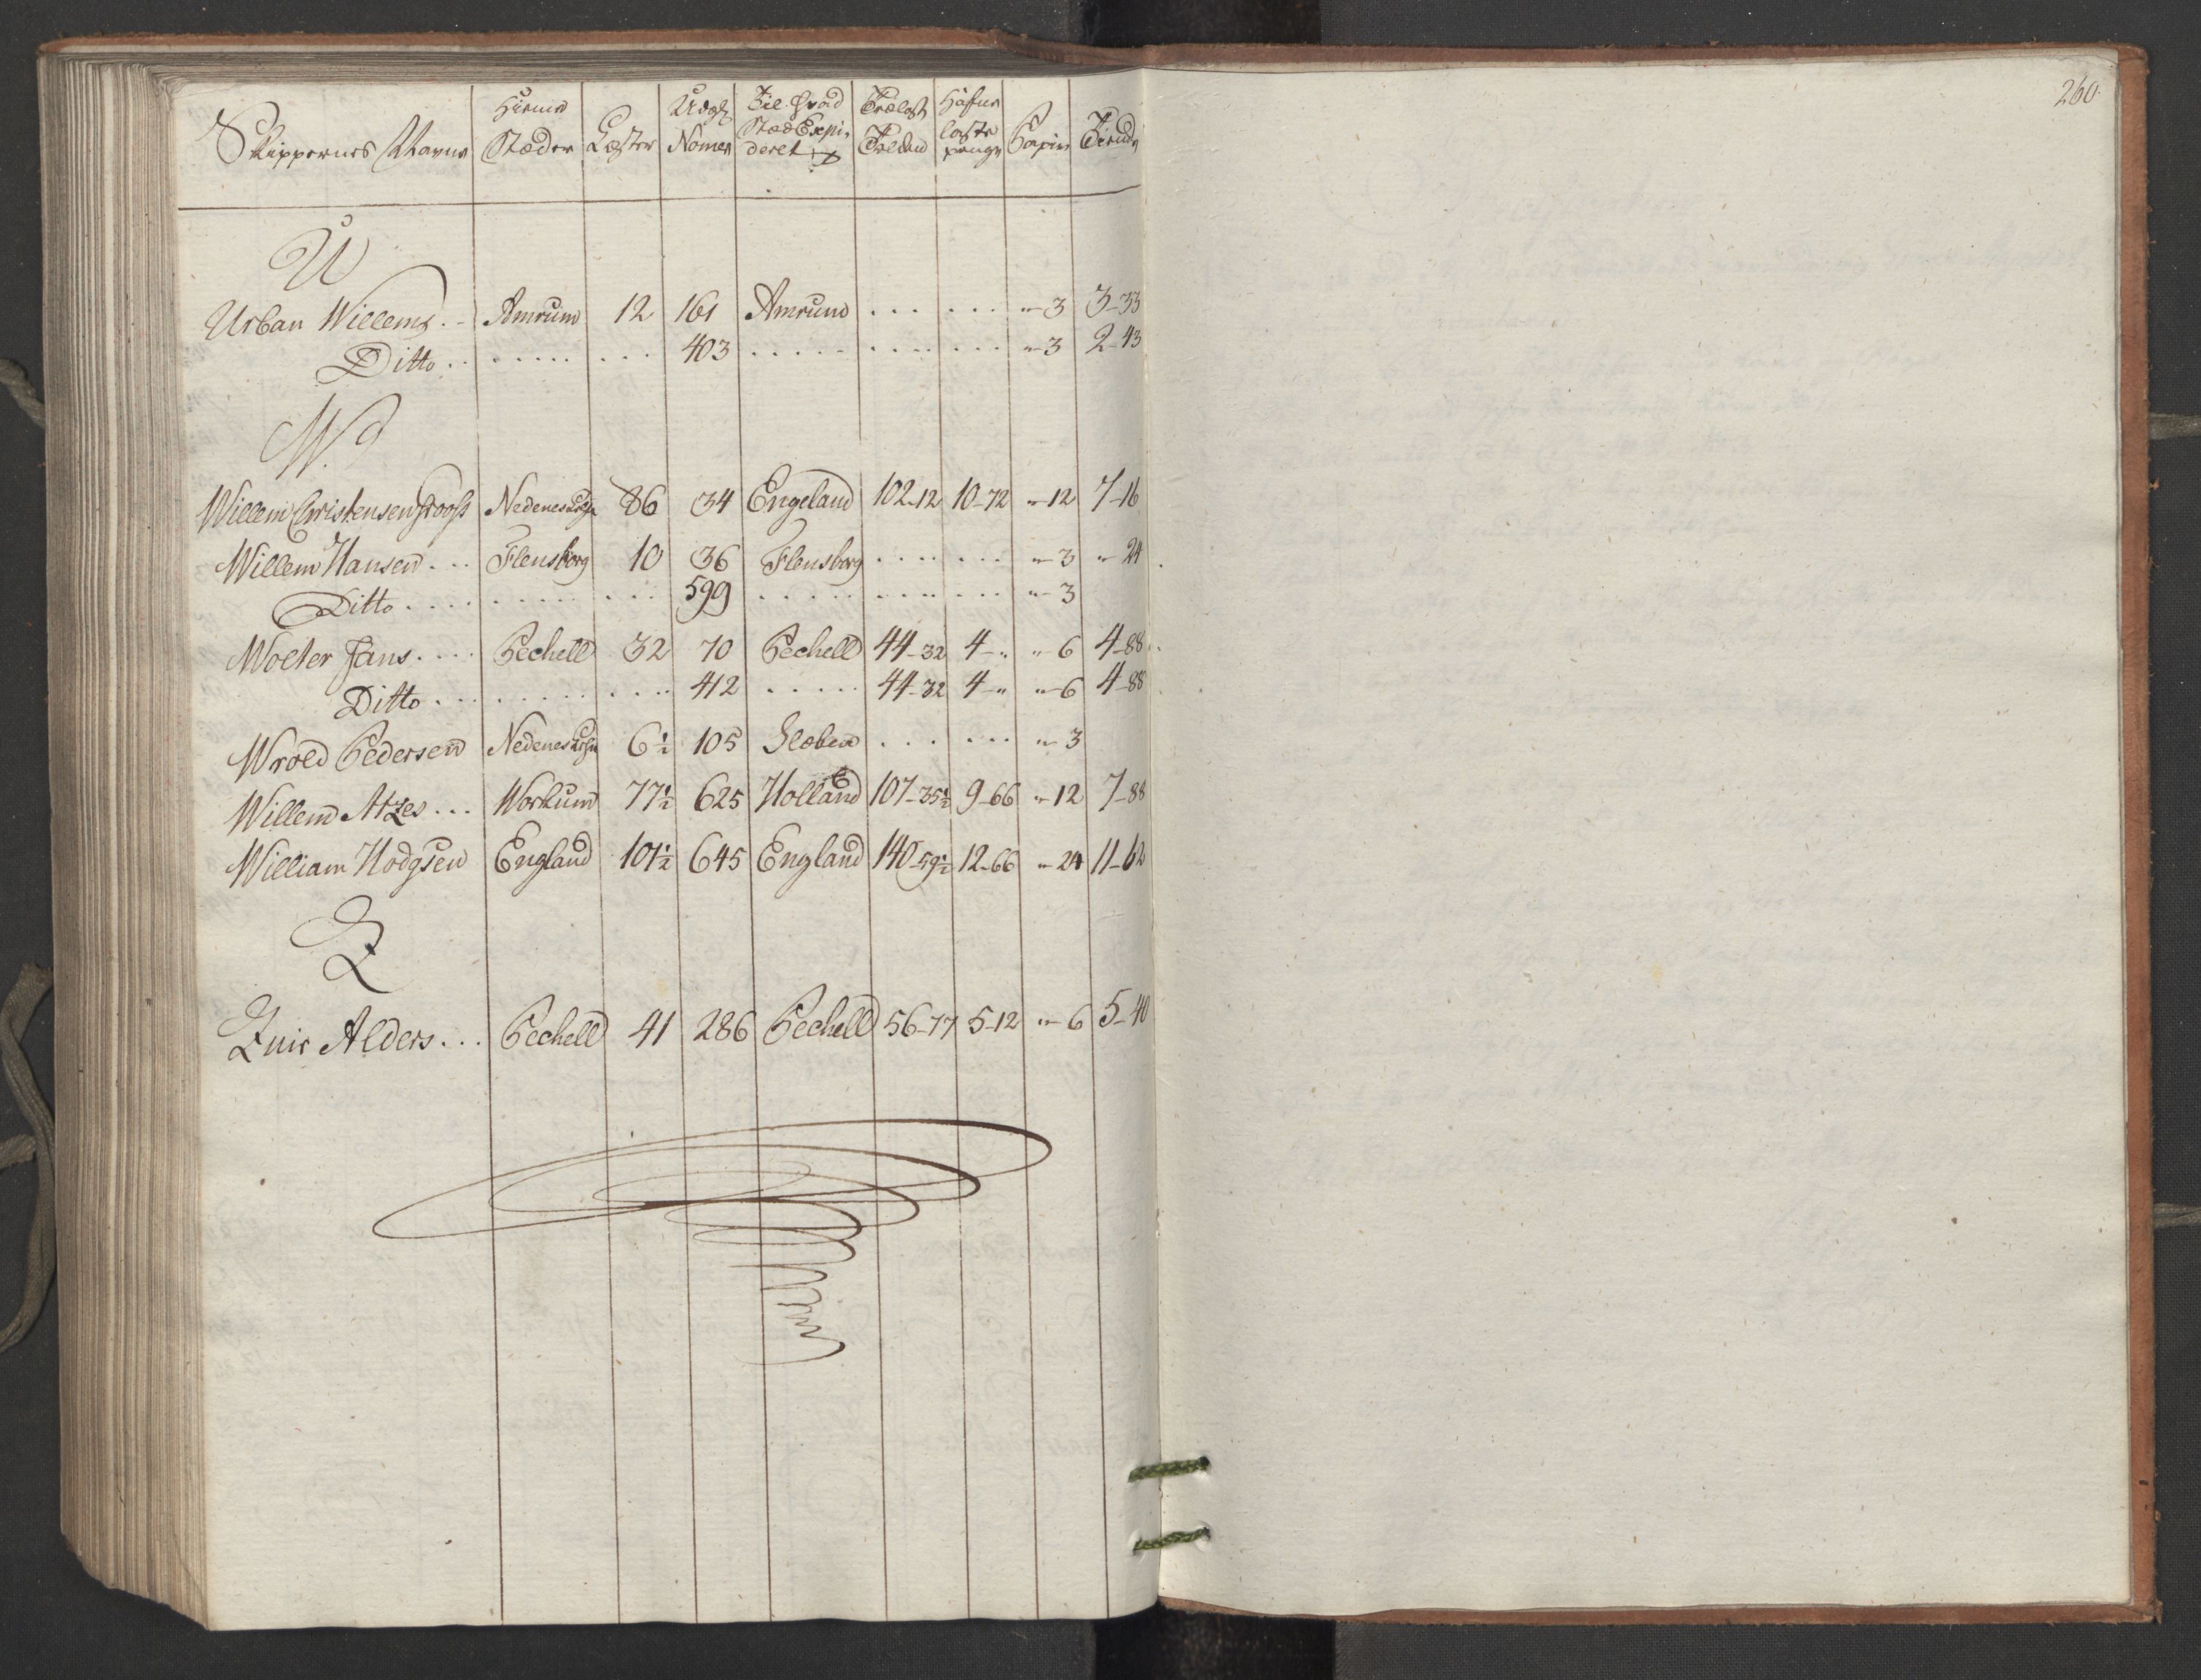 260.
Skippernes Navne | Hiemme Stæder | Læster | Udg: Nomer | Til hvad Stæd Expideret | Trælast Tolden | Laste penge | Papir | Tiende
U
Urban Willems . . | Amrum | 12 | 161 | Amrum | . . . | . . . | "-3 | 3-33
Ditto . . | . . . . . | . . . | 403 | . . . . . | . . . . | . . . | "-3 | 2-43
W.
Willem Christensen | Nedenes | 86 | 34 | Engeland | 102-12 | 10-72 | "-12 | 7-16
Willem Hansen . . . | Flensborg | 10 | 36 | Flensborg | . . . . | . . . | "-3 | "-24
Ditto . . . . | . . . . . | . . . | 599 | . . . . . | . . . . | . . . | "-3
Wolter Jans . . . . | Pechell | 32 | 70 | Pechell | 44-32 | 4-" | "-6 | 4-88
Ditto . . . | . . . . . | . . . . | 412 | . . . . . | 44-32 | 4-" | "-6 | 4-88
Wrold Pedersen | Nedenes | 6½ | 105 | | . . . | . . . | "-3
Willem Atzes . . . | Workum | 77½ | 625 | Holland | 107-35½ | 9-66 | "-12 | 7-88
William Hodgsen | England | 101½ | 645 | England | 140-59½ | 12-66 | "-24 | 11-62
Z
Zuir Alders . . . | Pechell | 41 | 286 | Pechell | 56-77 | 5-12 | "-6 | 5-40